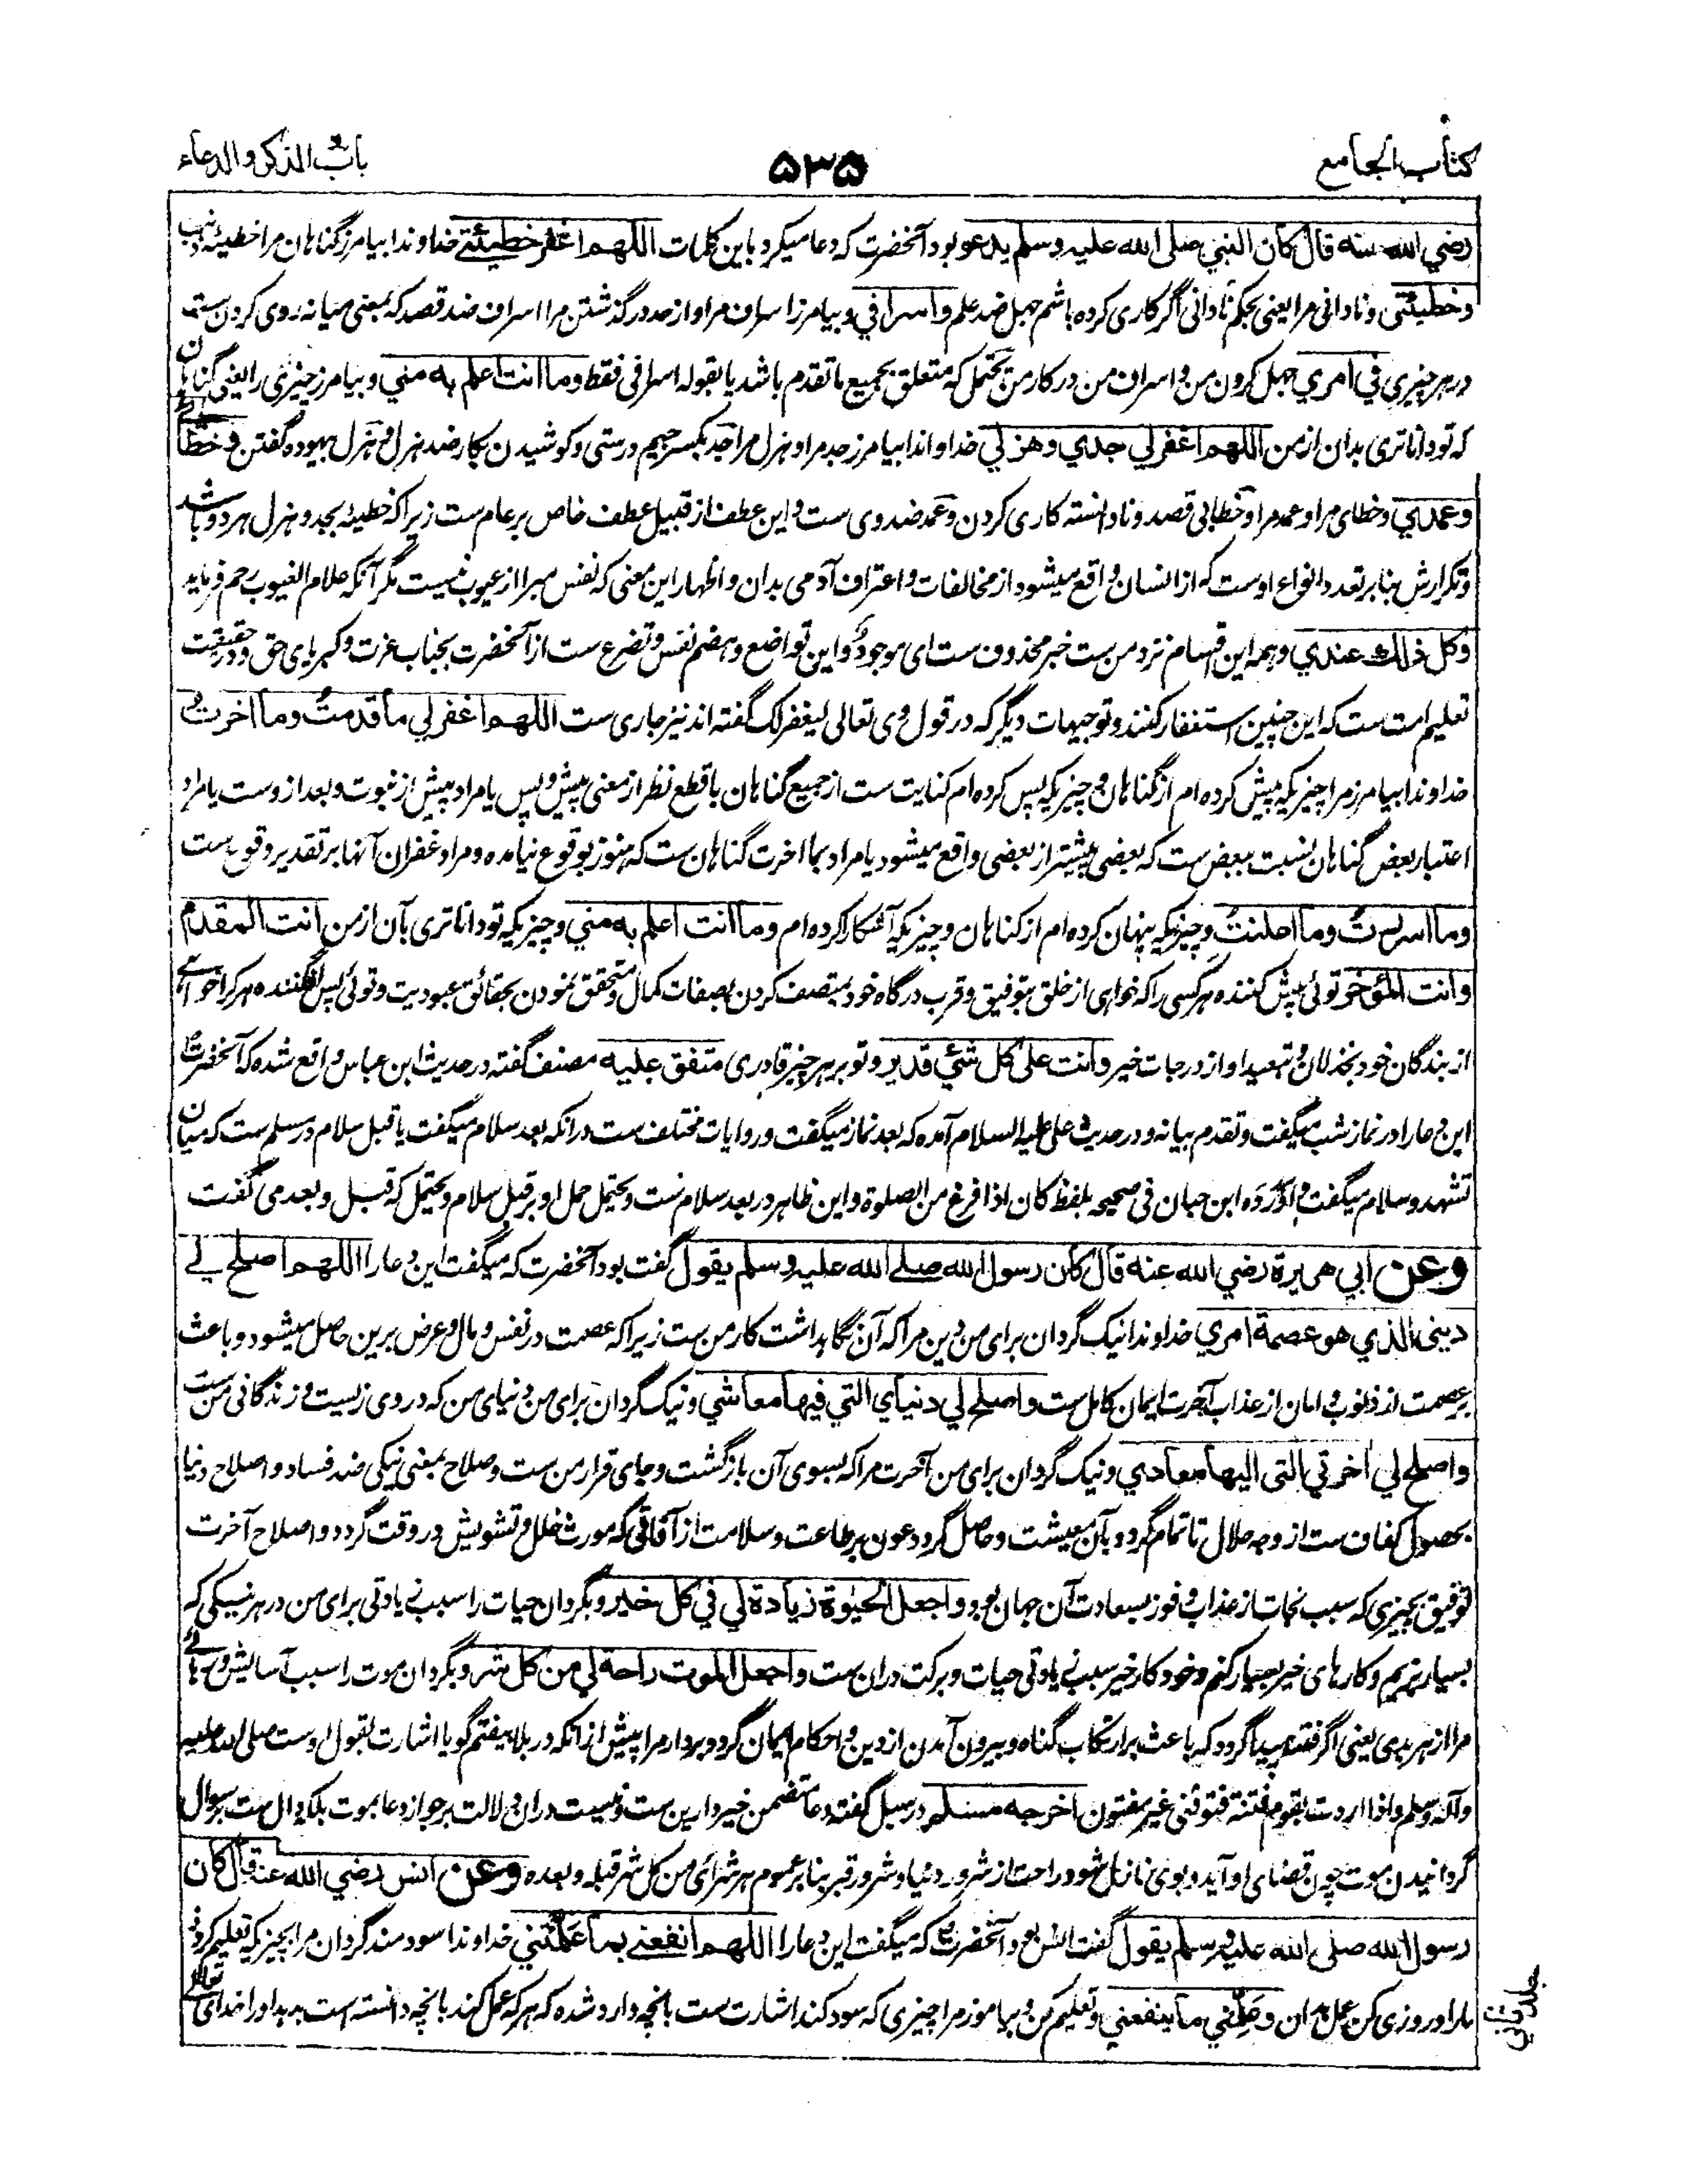 كتاب الجامع
۵۳۵
باب الذكر والدعاء
رضي الله عنه قال كان النبي صلى الله عليه وسلم يدعو بود آنحضرت که دعا میکرد باین کلمات اللهم اغفر لي خطيئتي خداوندا بیامرز گناهان مرا خطیئه ذنب
وخطيئتي و نادانی مرا یعنی بحکم نادانی اگر کاری کرده باشم جهل ضد علم واسرافي و بیامرز اسراف مرا و از حد در گذشتن مرا اسراف ضد قصد که بمعنی میانه روی کردن ست
در هر چیزی في امري جهل کردن من و اسراف من در کار من یحتمل که متعلق بجمیع ما تقدم باشد یا بقوله اسرافی فقط وما انت اعلم به مني و بیامرز چیزی را یعنی گناهان
که تو داناتری بدان از من اللهم اغفر لي جدي وهزلي خداوندا بیامرز جد مرا و هزل مرا جد بکسر جیم درستی و کوشیدن بکار ضد هزل و هزل بیهوده گفتن وخطائي
وعمدي و خطای مرا و عمد مرا و خطا بی قصد و نادانسته کاری کردن و عمد ضد وی ست و این عطف از قبیل عطف خاص بر عام ست زیرا که خطیئه بجد و هزل هر دو باشد
و تکرارش بنا بر تعدد انواع اوست که از انسان واقع میشود از مخالفات و اعتراف آدمی بدان و اظهار این معنی که نفس مبرا از عیوب نیست مگر آنکه علام الغیوب رحم فرماید
وكل ذلك عندي و همه این اقسام نزد من ست خبر محذوف ست ای موجود و این تواضع و هضم نفس و تضرع ست از آنحضرت بجناب عزت و کبریای حق و در حقیقت
تعلیم امت ست که این چنین استغفار کنند و توجیهات دیگر که در قول وی تعالی لیغفر لک گفته اند نیز جاری ست اللهم اغفر لي ما قدمت وما اخرت
خداوندا بیامرز مرا چیزیکه پیش کرده ام از گناهان و چیزیکه پس کرده ام کنایت ست از جمیع گناهان با قطع نظر از معنی پیش و پس یا مراد پیش از نبوت و بعد ازوست یا مراد
اعتبار بعض گناهان بنسبت ببعض ست که بعضی پیشتر از بعضی واقع میشود یا مراد بما اخرت گناهان ست که هنوز بوقوع نیامده و مراد غفران آنها بر تقدیر وقوع ست
وما اسررت وما اعلنت و چیزیکه پنهان کرده ام از گناهان و چیزیکه آشکارا کرده ام وما انت اعلم به مني و چیزیکه تو داناتری بآن از من انت المقدم
وانت المؤخر توئی پیش کننده هر کسی را که خواهی از خلق بتوفیق و قرب درگاه خود بمتصف کردن بصفات کمال و متحقق نمودن بحقائق عبودیت و توئی پس افگننده هر کرا خواهی
از بندگان خود بخذلان و تبعید او از درجات خیر وانت على كل شيء قدير و تو بر هر چیز قادری متفق عليه مصنف گفته در حدیث ابن عباس واقع شده که آنحضرت
این دعا را در نماز شب میگفت و تقدم بیانه و در حدیث علی علیه السلام آمده که بعد نماز میگفت و روایات مختلف ست در آنکه بعد سلام میگفت یا قبل سلام در مسلم ست که میان
تشهد و سلام میگفت و اورده ابن حبان فی صحیحه بلفظ کان اذا فرغ من الصلوة و این ظاهر در بعد سلام ست و یحتمل حمل او بر قبل سلام و یحتمل که قبل و بعد می گفت
وعن ابي هريرة رضي الله عنه قال كان رسول الله صلے الله عليه وسلم يقول گفت بود آنحضرت که میگفت این دعا را اللهم اصلح لي
ديني الذي هو عصمة امري خداوندا نیک گردان برای من دین مرا که آن نگاهداشت کار من ست زیرا که عصمت در نفس و مال و عرض برین حاصل میشود و باعث
بر عصمت از ذنوب و امان از عذاب آخرت ایمان کامل ست واصلح لي دنياي التي فيها معاشي و نیک گردان برای من دنیای من که در وی زیست و زندگانی من ست
واصلح لي اخرتي التي اليها معادي و نیک گردان برای من آخرت مرا که بسوی آن بازگشت و جای قرار من ست و صلاح بمعنی نیکی ضد فساد و اصلاح دنیا
بحصول کفاف ست از وجه حلال تا تمام گردد بآن معیشت و حاصل گردد عون بر طاعت و سلامت از آفاتی که مورث خلل و تشویش در وقت گردد و اصلاح آخرت
توفیق بچیزی که سبب نجات از عذاب و فوز بسعادت آن جهان بود واجعل الحيوة زيادة لي في كل خير و بگردان حیات را سبب زیادتی برای من در هر نیکی که
بسیار بزیم و کارهای خیر بسیار کنم و خود کار خیر سبب زیادتی حیات و برکت دران ست واجعل الموت راحة لي من كل شر و بگردان موت را سبب آسایش و رهائی
مرا از هر بدی یعنی اگر فتنه پیدا گردد که باعث بر ارتکاب گناه و بیرون آمدن از دین و احکام ایمان گردد بردار مرا پیش از آنکه در بلا بیفتم گویا اشارت بقول اوست صلی الله علیه
و آله وسلم و اذا اردت بقوم فتنة فتوفنی غیر مفتون اخرجه مسلم در سبل گفته دعا متضمن خیر دارین ست و نیست دران دلالت بر جواز دعا بموت بلکه دال ست بر سوال
گردانیدن موت چون قضای او آید و بوی نازل شود راحت از شرور دنیا و شرور قبر بنا بر عموم هر شر ای من کل شر قبله و بعده وعن انس رضي الله عنه قال كان
رسول الله صلى الله عليه وسلم يقول گفت انس بود آنحضرت که میگفت این دعا را اللهم انفعني بما علمتني خداوندا سودمند گردان مرا بچیزیکه تعلیم کردی
مارا و روزی کن عمل بدان وعلمني ما ينفعني و تعلیم کن و بیاموز مرا چیزی که سود کند اشارت ست بانچه وارد شده که هر که عمل کند بانچه دانسته است بدهد او را خدای تعالے
جلد ثاني